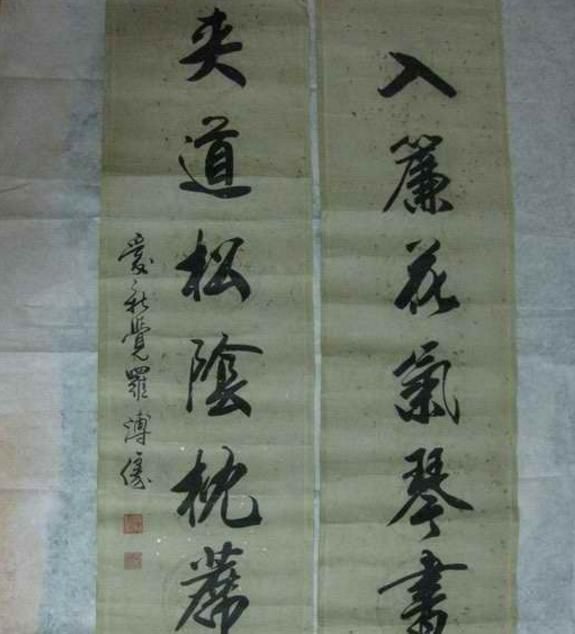 入簾花氣琴書
夾道松陰枕蓆
愛新覺羅溥儀